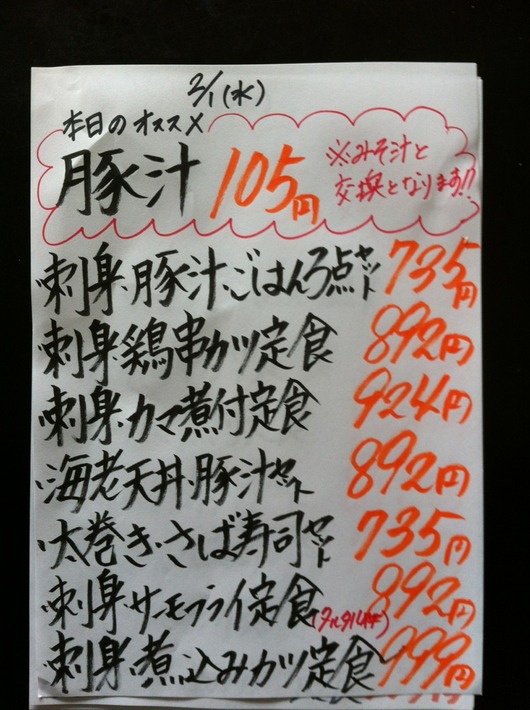 2/1(水)
本日のオススメ
豚汁 105円
※みそ汁と
交換となります!!
刺身・豚汁・ごはん3点セット 735円
刺身・鶏串カツ定食 892円
刺身・カマ煮付定食 924円
海老天丼・豚汁セット 892円
太巻き・さば寿司セット 735円
刺身・サーモンフライ定食 892円
(タルタル付)
刺身・煮込みカツ定食 999円